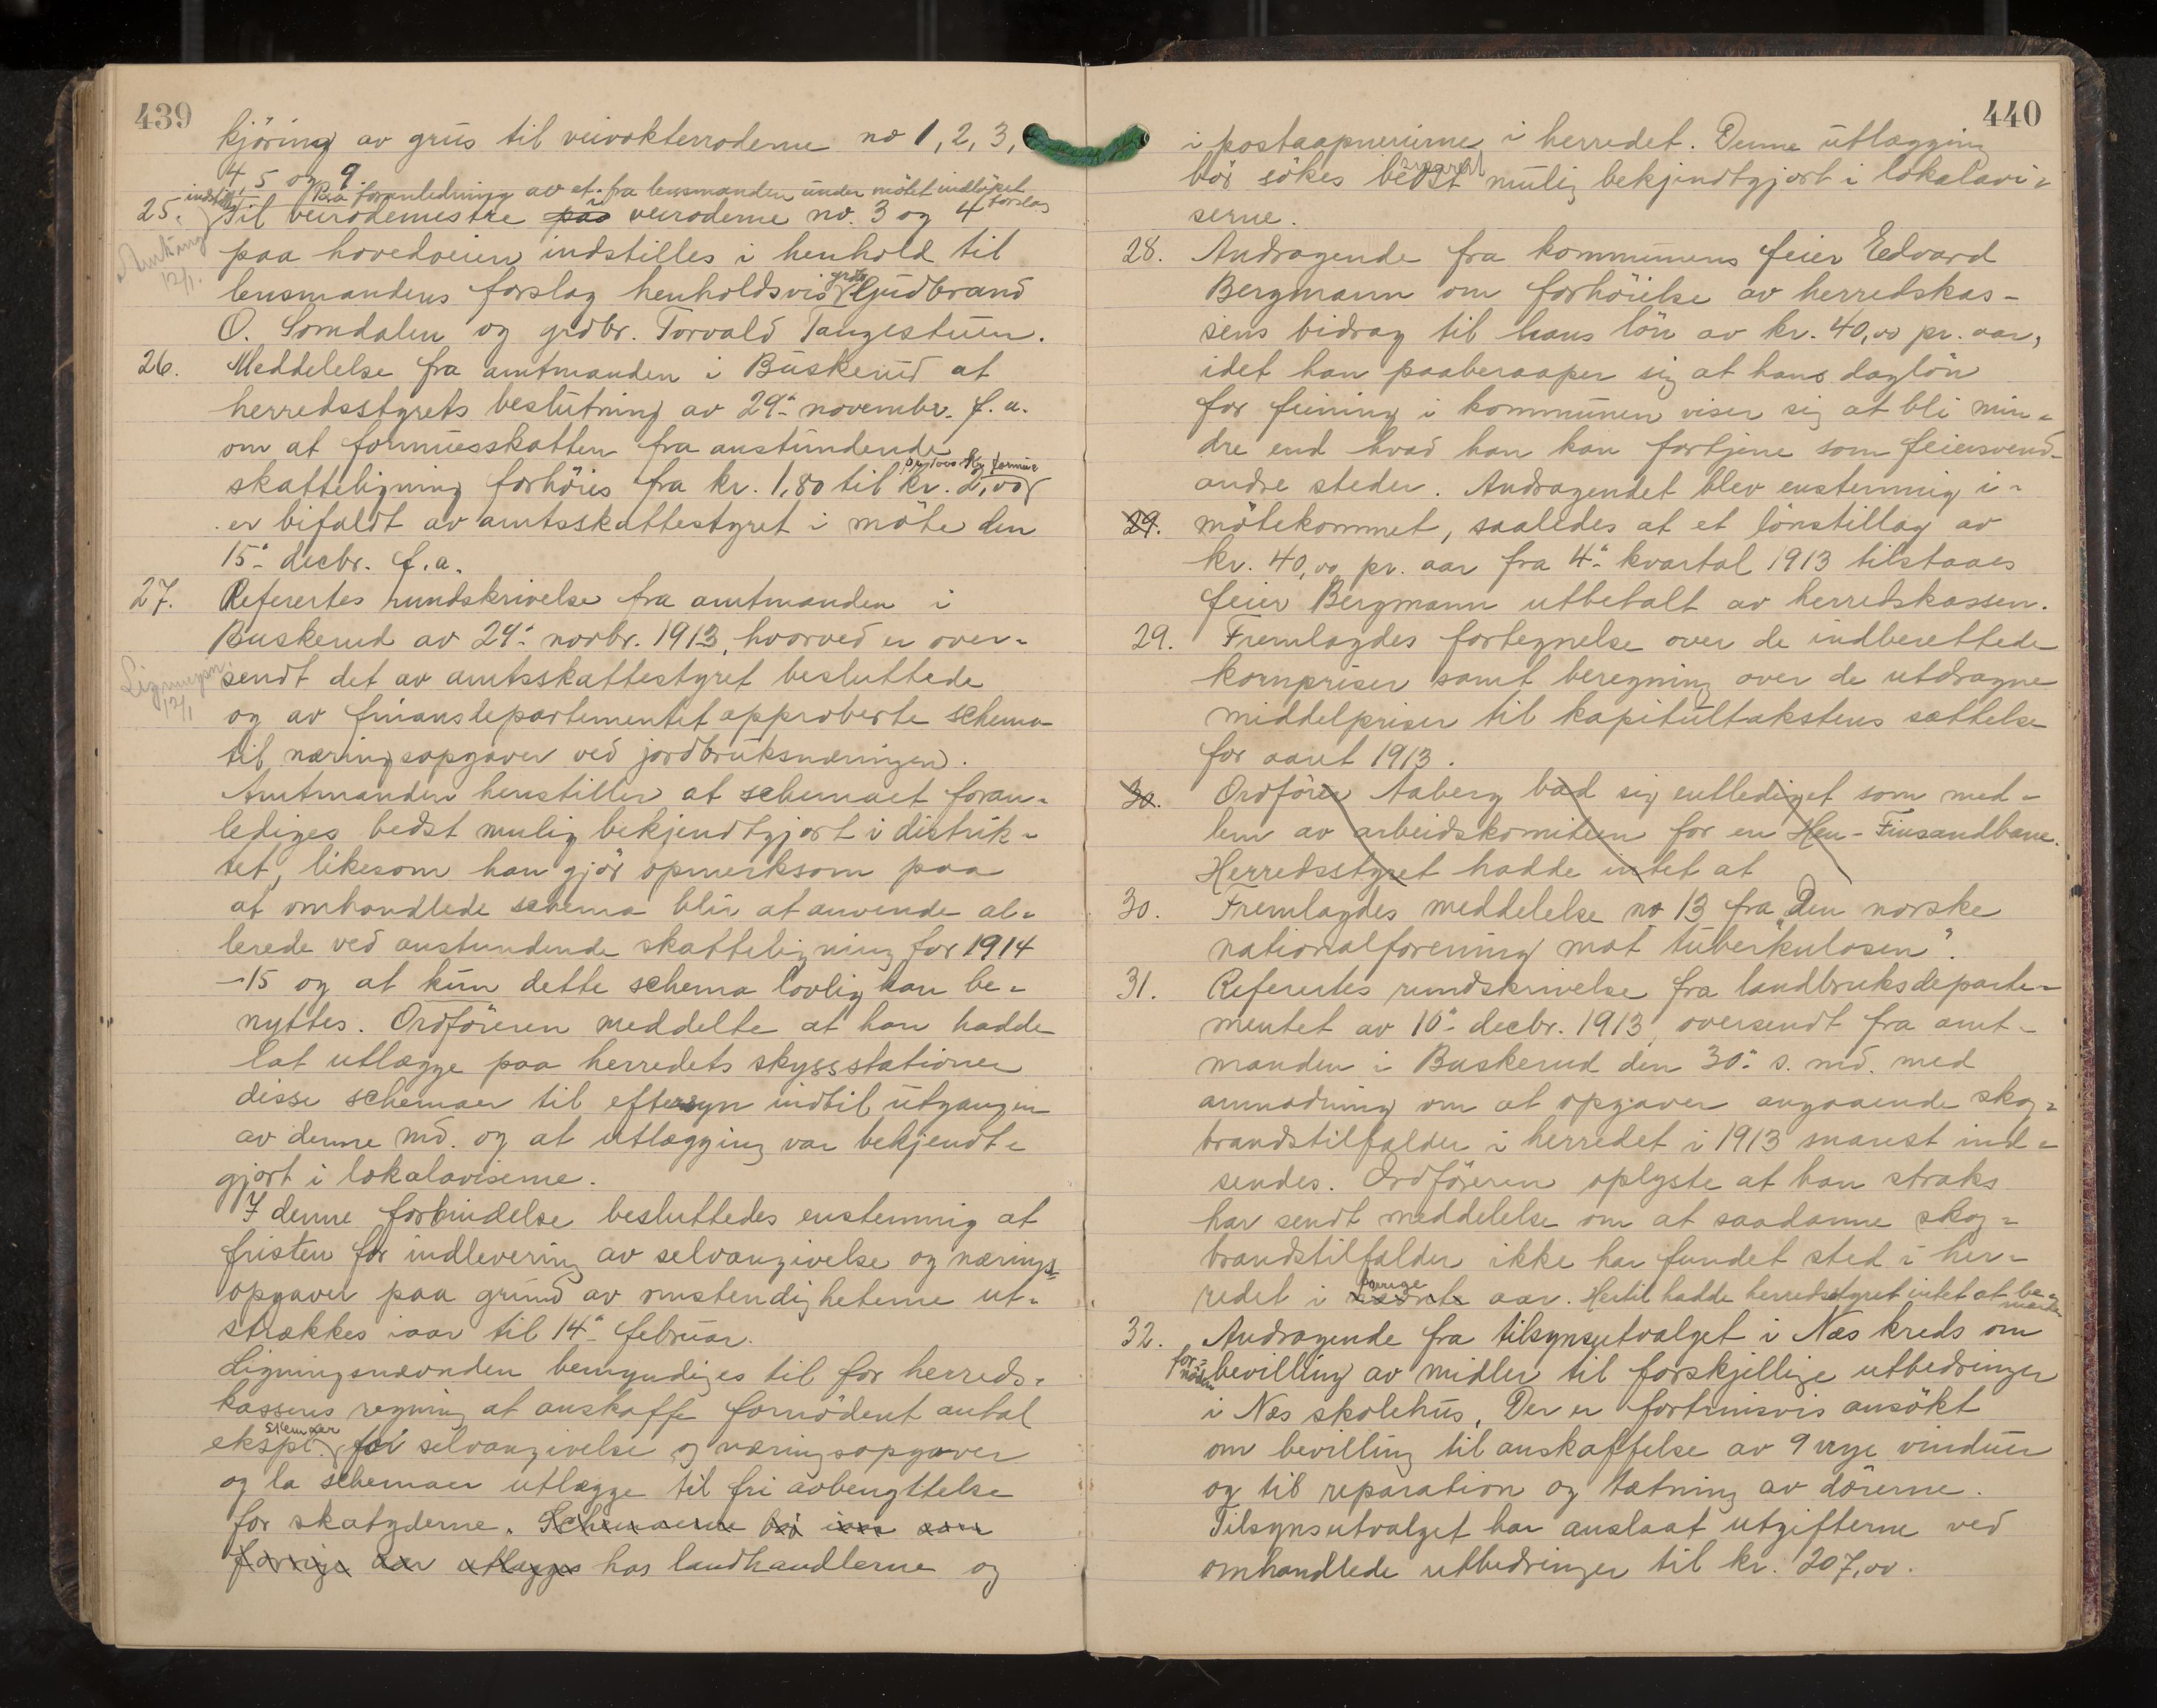 439
kjöring av grus til veivokterroderne no 1, 2, 3,
4, 5 og 9.
indstilles Paa foranledning av et fra lensmanden under mötet indlöpet forslag
25. Til veirodemestre paa i veiroderne no. 3 og 4
Amting
12/1.
paa hovedveien indstilles i henhold til
lensmandens forslag henholdsvis grdbr. Gudbrand
O. Somdalen og grdbr. Torvald Taugestuen.
26. Meddelelse fra amtmanden i Buskerud at
herredsstyrets beslutning av 29de novembr. f. a.
om at formuesskatten fra anstundende
skatteligning forhöies fra kr. 1,80 til kr. 2,00 pr. 1000 kr. formue
er bifaldt av amtsskattestyret i möte den
15de decbr. f. a.
27. Referertes rundskrivelse fra amtmanden i
Buskerud av 24de novbr. 1913, hvorved er over-
Ligningsn.
12/1
sendt det av amtsskattestyret besluttede
og av finansdepartementet approberte schema
til næringsopgaver ved jordbruksnæringen.
Amtmanden henstiller at schemaet foran-
lediges bedst mulig bekjendtgjort i distrik-
tet, likesom han gjör opmerksom paa
at omhandlede schema blir at anvende al-
lerede ved anstundende skatteligning for 1914
-15 og at kun dette schema lovlig kan be-
nyttes. Ordföreren meddelte at han hadde
lat utlægge paa herredets skyssstationer
disse schemaer til eftersyn indtil utgangen
av denne md. og at utlægging var bekjendt-
gjort i lokalaviserne.
I denne forbindelse besluttedes enstemmig at
fristen for indlevering av selvangivelse og nærings-
opgaver paa grund av omstendigheterne ut-
strækkes iaar til 14de februar.
Ligningsnævnden bemyndiges til for herreds-
kassens regning at anskaffe fornödent antal
ekspl. skemaer for selvangivelse og næringsopgaver
og la schemaer utlægge til fri avbenyttelse
for skatyderne. Schemaerne bör iaar som
forrige aar utlægges hos landhandlerne og
440
i postaapnerierne i herredet. Denne utlægging
bör sökes bedst mulig bekjendtgjort i lokalavi-
serne.
28. Andragende fra kommunens feier Edvard
Bergmann om forhöielse av herredskas-
sens bidrag til hans lön av kr. 40,00 pr. aar,
idet han paaberaaper sig at hans daglön
for feining i kommunen viser sig at bli min-
dre end hvad han kan fortjene som feiersvend
andre steder. Andragendet blev enstemmig i-
29. mötekommet, saaledes at et lönstillæg av
kr. 40,00 pr. aar fra 4de kvartal 1913 tilstaaes
feier Bergmann utbetalt av herredskassen.
29. Fremlagdes fortegnelse over de indberettede
kornpriser samt beregning over de utdragne
middelpriser til kapitultakstens sættelse
for aaret 1913.
30. Ordfører Aaberg bad sig entlediget som med-
lem av arbeidskomiteen for en Hen-Finsandbane.
Herredsstyret hadde intet at
30. Fremlagdes meddelelse no 13 fra "Den norske
nationalforening mot tuberkulosen".
31. Refererttes rundskrivelse fra landbruksdeparte-
mentet av 10de decbr. 1913, oversendt fra amt-
manden i Buskerud den 30te s. md. med
anmodning om at opgaver angaaende skog-
brandstilfælder i herredet i 1913 snarest ind-
sendes. Ordföreren oplyste at han straks
har sendt meddelelse om at saadanne skog-
brandstilfælder ikke har fundet sted i her-
redet i nævnte forrige aar. Hertil hadde herredsstyret intet at be-
merke
32. Andragende fra tilsynsutvalget i Næs kreds om
for-
nöden bevilling av midler til forskjellige utbedringer
i Næs skolehus. Der er fortrinsvis ansökt
om bevilling til anskaffelse av 9 nye vinduer
og til reparation og tætning av dörerne.
Tilsynsutvalget har anslaat utgifterne ved
omhandlede utbedringer til kr. 207,00.